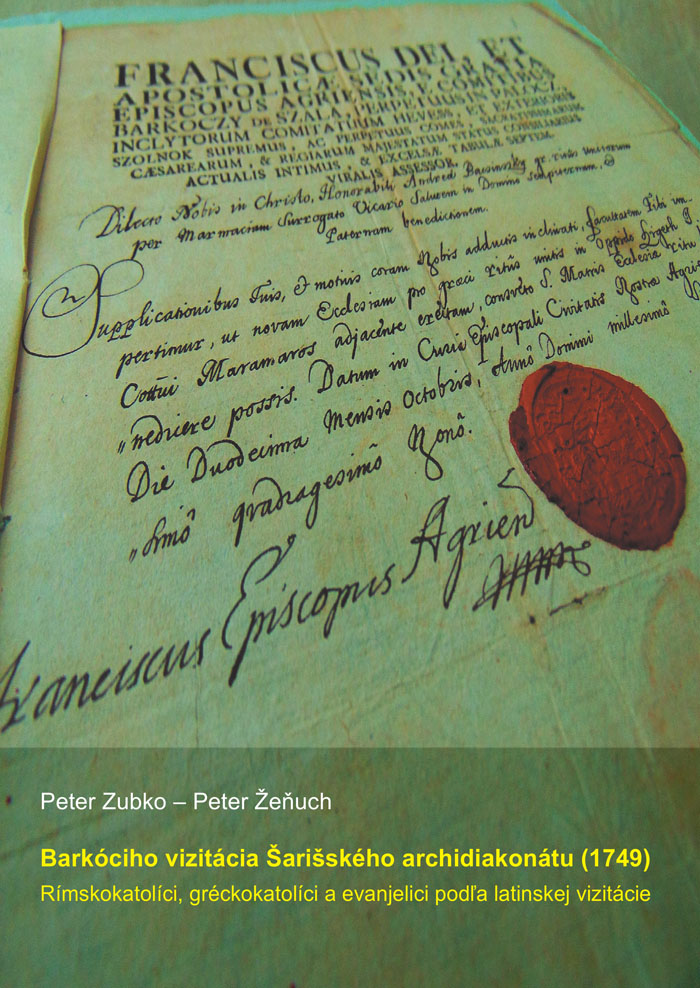 FRANCISCUS DEI, ET
APOSTOLICÆ SEDIS GRATIA
EPISCOPUS AGRIENSIS, E COMITIBUS
BARKOCZY DE SZALA, PERPETUUS IN PALOCZ,
INCLYTORUM COMITATUUM HEVESS, ET EXTERIORIS
SZOLNOK SUPREMUS, AC PERPETUUS COMES, SACRATISSIMARUM
CÆSAREARUM, & REGIARUM MAJESTATUM STATUS CONSILIARIUS
ACTUALIS INTIMUS, & EXCELSÆ TABULÆ SEPTEM-
VIRALIS ASSESSOR.
Dilecto Nobis in Christo, Honorabili Andreæ Bacsinszky gr. ritûs Unitorum
per Marmaciam Surrogato Vicario Salutem in Domino sempiternam, &
Paternam benedictionem.
Supplicationibus Tuis, & motivis coram Nobis adductis inclinati, facultatem Tibi im-
pertimur, ut novam Ecclesiam pro græci ritûs unitis in Oppido
Cottui Maramaros adjacente erectam, consveto S. Matris Ecclesiæ ritu
nedicere possis. Datum in Curia Episcopali Civitatis Nostræ
Die Duodecima Mensis Octobris, Annô Domini millesimô
qvadragesimô Nonô.
Franciscus Episcopus Agrien
Peter Zubko – Peter Žeňuch
Barkóciho vizitácia Šarišského archidiakonátu (1749)
Rímskokatolíci, gréckokatolíci a evanjelici podľa latinskej vizitácie